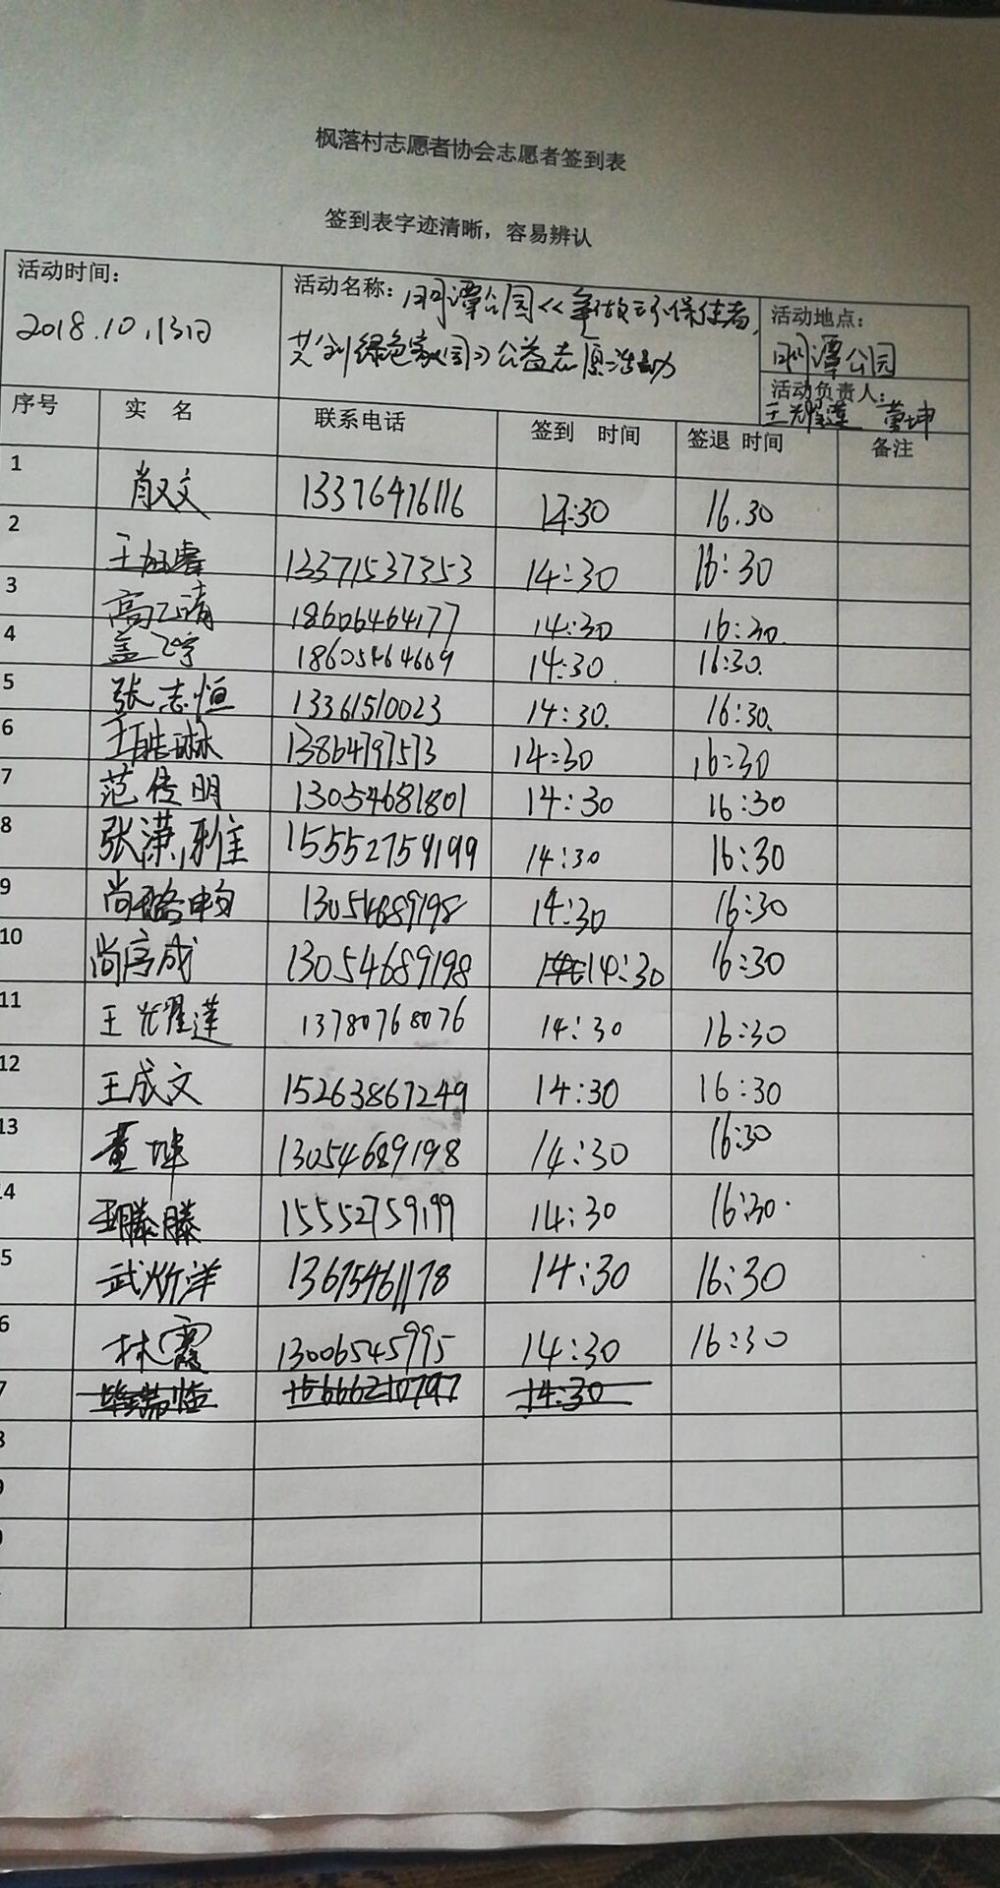 枫落村志愿者协会志愿者签到表
签到表字迹清晰，容易辨认
活动时间：
2018.10.13日
活动名称：明潭公园《争做环保使者，
共创绿色家园》公益志愿活动
活动地点：
明潭公园
活动负责人：
王光耀莲 董坤
序号 实 名 联系电话 签到 时间 签退 时间 备注
1 肖文 13376476116 14:30 16.30
2 13371537353 14:30 16:30
3 高乙清 18606464177 14:30 16:30.
4 盖飞宇 18605464669 14:30. 16:30.
5 张志恒 13361510023 14:30. 16:30.
6 王皓琳 13864797573 14:30 16:30
7 范传明 13054681801 14:30 16:30
8 张潇雅 15552759199 14:30 16:30
9 13054689198 14:30 16:30
10 尚彦成 13054689198 14:30 16:30
11 王光耀莲 13780768076 14:30 16:30
12 王成文 15263867249 14:30 16:30
13 董坤 13054689198 14:30 16:30
4 王滕滕 15552759199 14:30 16:30.
5 武炘洋 13675461178 14:30 16:30
6 林霞 13006545995 14:30 16:30
7 15666210797 14:30